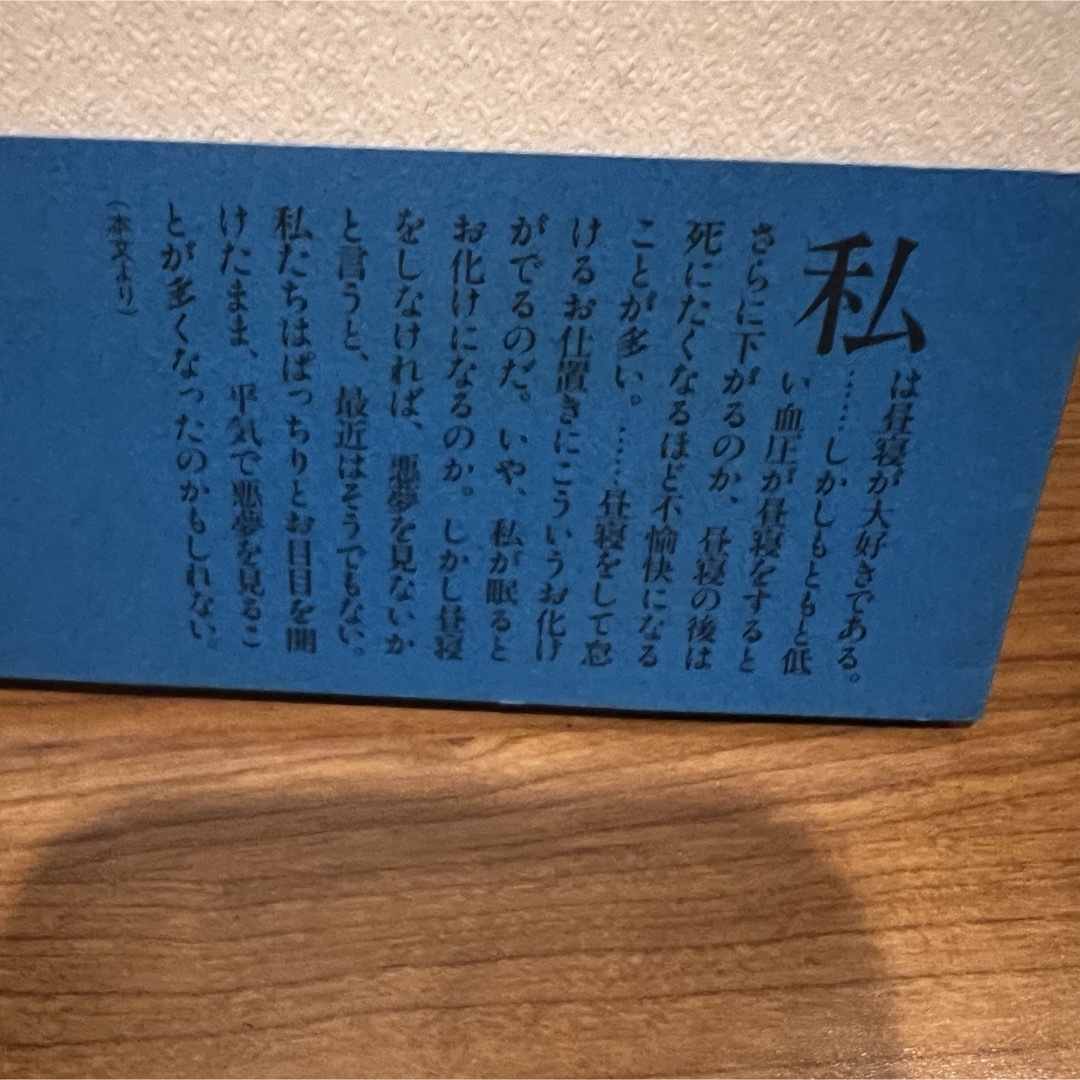 私は昼寝が大好きである。
……しかしもともと低
い血圧が昼寝をすると
さらに下がるのか、昼寝の後は
死にたくなるほど不愉快になる
ことが多い。……昼寝をして怠
けるお仕置きにこういうお化け
がでるのだ。いや、私が眠ると
お化けになるのか。しかし昼寝
をしなければ、悪夢を見ないか
と言うと、最近はそうでもない。
私たちはぱっちりとお目目を開
けたまま、平気で悪夢を見るこ
とが多くなったのかもしれない。
(本文より)